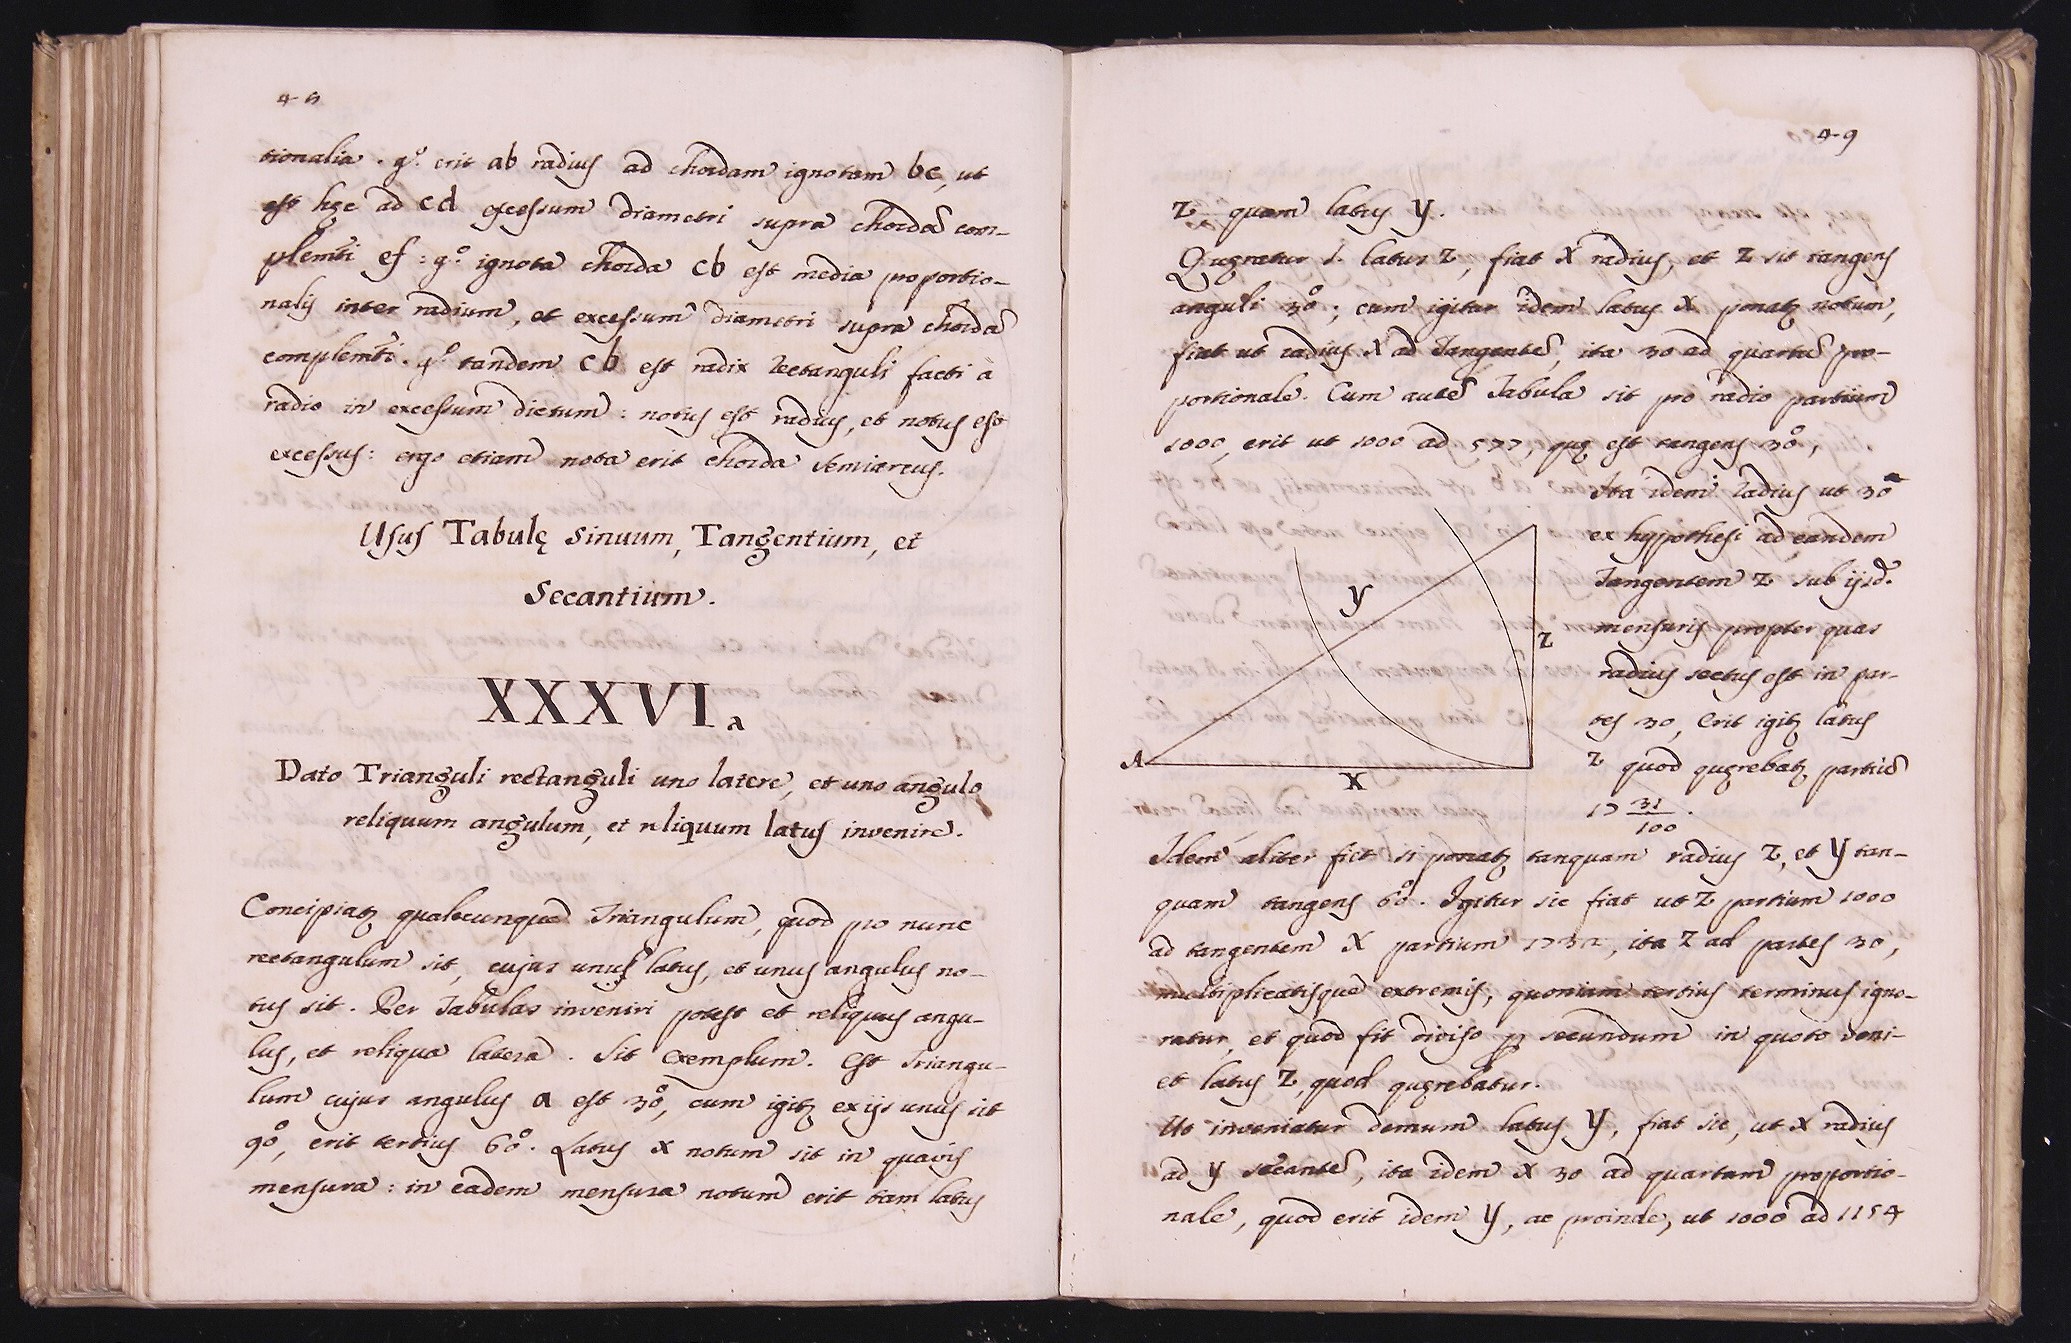 48
tionalia. g.º erit ab radius ad chordam ignotam bc, ut
est hęc ad cd excessum diametri supra chordā com-
plemēti ef: g.º ignota chorda cb est media proportio-
nalis inter radium, et excessum diametri supra chordā
complemēti. g.º tandem cb est radix rectanguli facti à
radio in excessum dictum: notus est radius, et notus est
excessus: ergo etiam nota erit chorda semiarcus.
Usus Tabulę Sinuum, Tangentium, et
Secantium.
XXXVI.a
Dato Trianguli rectanguli uno latere, et uno angulo
reliquum angulum, et reliquum latus invenire.
Concipiatꝫ qualecunque Triangulum, quod pro nunc
rectangulum sit, cujus unus latus, et unus angulus no-
tus sit. Per Tabulas inveniri potest et reliquus angu-
lus, et reliqua latera. Sit exemplum. Est Triangu-
lum cujus angulus a est 30°, cum igitꝫ ex ijs unus sit
90°, erit tertius 60°. Latus x notum sit in quavis
mensura: in eadem mensura notum erit tam latus
49
Z quam latus y.
Quęratur 1. latus Z, fiat X radius, et Z sit tangens
anguli 30°; cum igitur idem latus X ponatꝫ notum,
fiat ut radius X ad Tangentē, ita 30 ad quartū pro-
portionale. Cum autē Tabula sit pro radio partium
1000, erit ut 1000 ad 577, quę est tangens 30°,
Ita idem radius ut 30
ex hypothesi ad eandem
Tangentem Z sub ijsd.
mensuris propter quas
radius sectus est in par-
tes 30, Erit igitꝫ latus
Z quod quęrebatꝫ partiū
17 31/100.
y
Z
A
X
Idem aliter fiet si ponatꝫ tanquam radius Z, et y tan-
quam tangens 60°. Igitur sic fiat ut Z partium 1000
ad tangentem X partium 1732, ita Z ad partes 30,
multiplicatisque extremis, quonium tertius terminus igno-
ratur, et quod fit diviso ꝑ secundum in quoto veni-
et latus Z, quod quęrebatur.
Ut inveniatur demum latus y, fiat sic, ut X radius
ad y secantē, ita idem X 30 ad quartam proportio-
nale, quod erit idem y, ac proinde, ut 1000 ad 1154